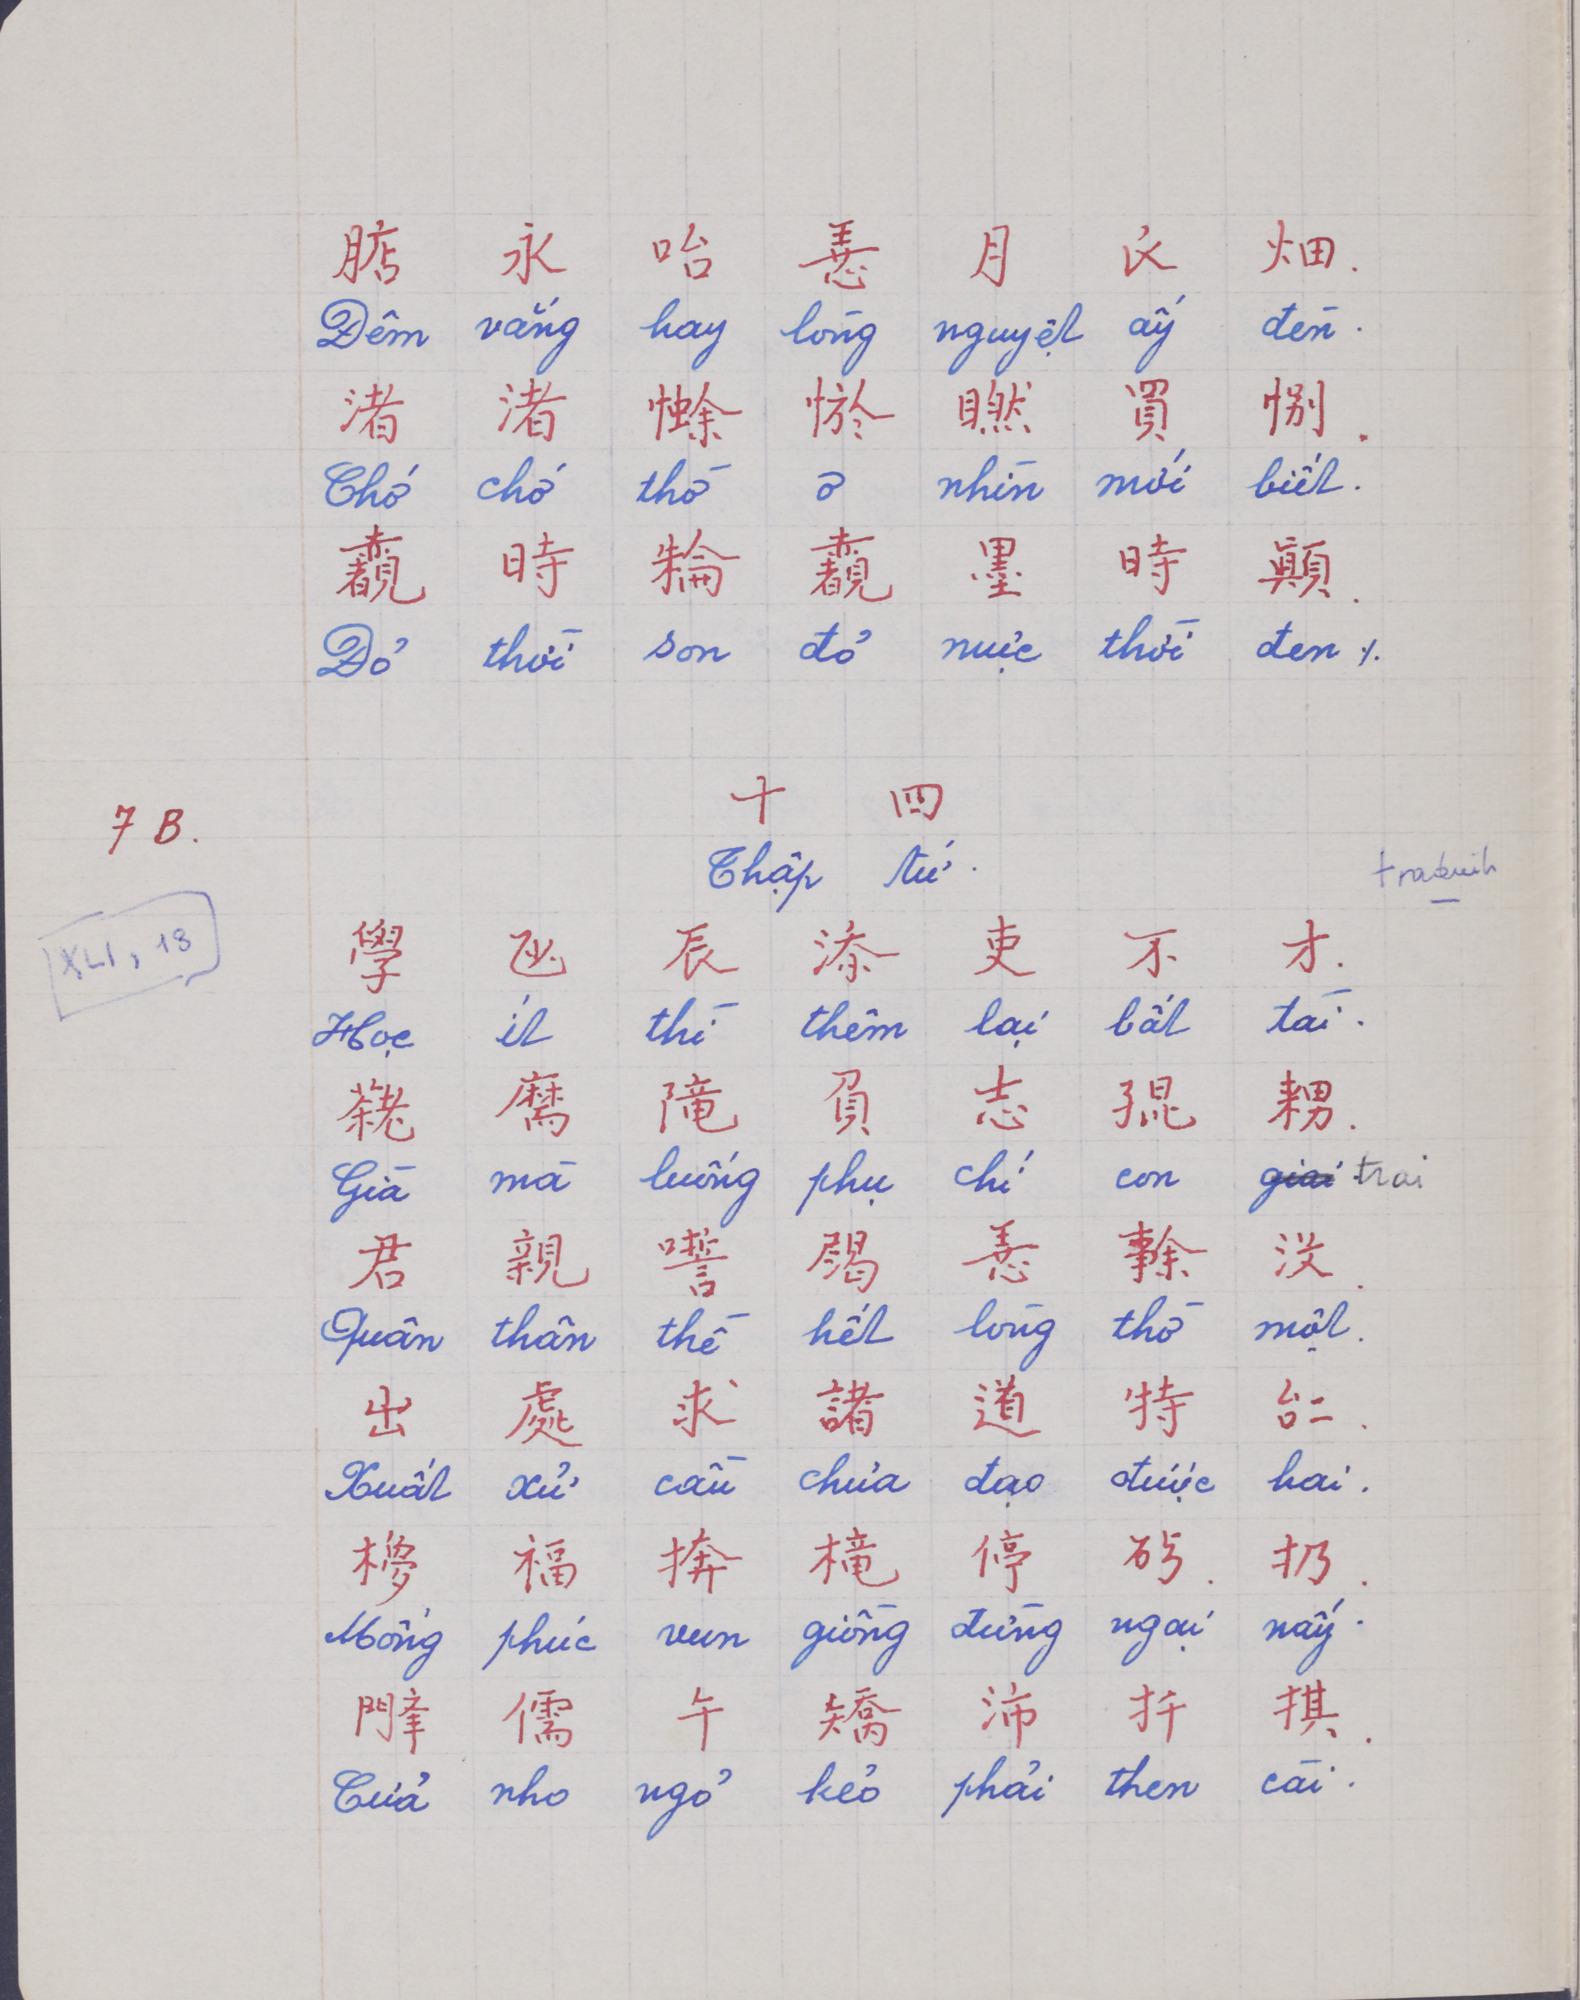 永 咍 月 畑.
Đêm vắng hay lòng nguyệt ấy đèn.
渚 渚 買
Chớ chớ thờ ơ nhìn mới biết.
時 墨 時 顛.
Đỏ thời son đỏ mực thời đen ⁒.
十 四
7 B.
Thập tứ.
XLI, 13
學 辰 添 吏 不 才.
Học ít thì thêm lại bất tài.
負 志
Già mà luống phụ chí con giai trai
君 親 没.
Quân thân thề hết lòng thờ một.
出 處 求 諸 道 特 𠄩.
Xuất xử cầu chưa đạo được hai.
福 停
Mống phúc vun giồng đừng ngại nấy.
儒 午 矯 沛 扦 掑.
Cửa nho ngỏ kẻo phải then cài.